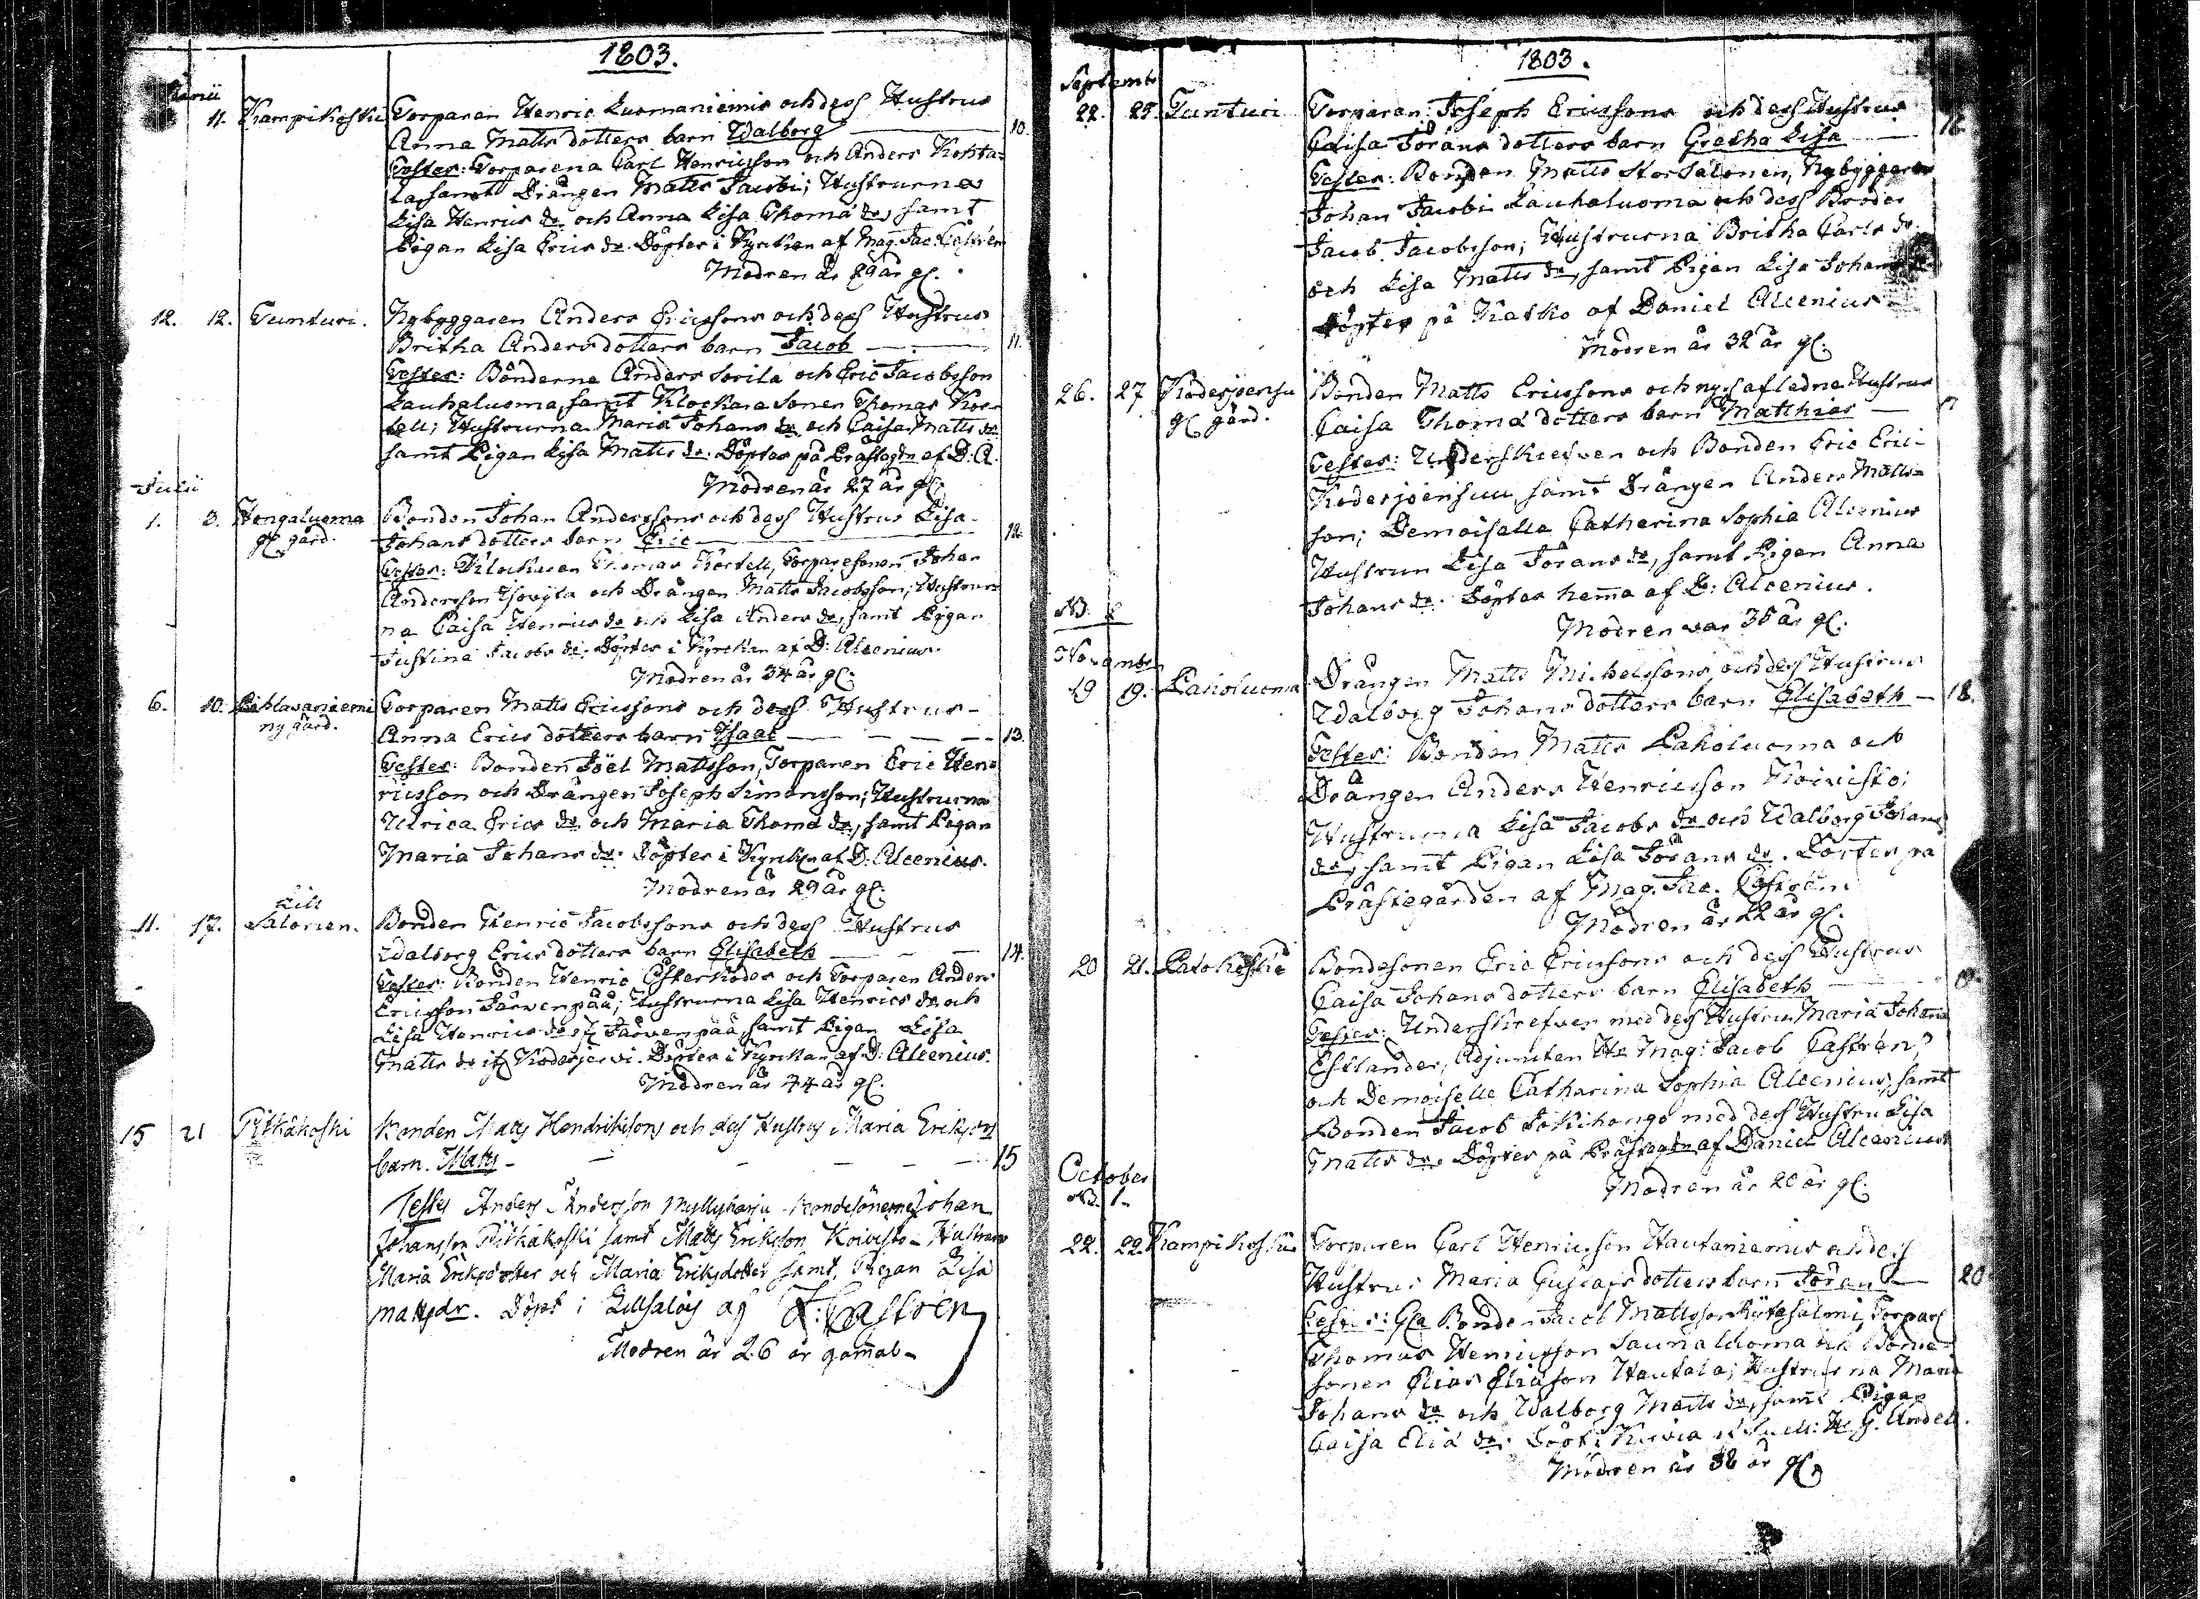 1803.
Junii
11. Kampikoski Torparen Henric Luomaniemis och dess Hustrus
Anna Matts dotters barn Walborg — 10.
Testes: Torparena Carl Henricsson och Anders Kohta-
la samt Drängen Matts Jacobi; Hustrurna
Lisa Henrics dr och Anna Lisa Thomæ dr, samt
Pigan Lisa Erics dr. Döptes i Kyrkan af Mag. Jac. Castrén
Modren är 29 år gl.
12. 12. Tunturi. Nybyggaren Anders Ericssons och dess Hustrus
Britha Anders dotters barn Jacob — 11.
Testes: Bönderne Anders Sorila och Eric Jacobsson
Lauhaluoma, samt Klockare Sonen Thomas Kor-
tell; Hustrurna Maria Johans dr och Caisa Matts dr
samt Pigan Lisa Matts dr. Döptes på Prästgdn af D. A.
Modren är 27 år gl.
Julii
1. 3. Hongaluoma Bonden Johan Anderssons och dess Hustrus Lisa
gl gård. Johans dotters barn Eric — 12.
Testes: Klockaren Thomas Kortell, Torparesonen Johan
Andersson Isoryta och Drängen Matts Jacobsson; Hustrur-
na Caisa Henrics dr och Lisa Anders dr, samt Pigan
Justina Jacobs dr. Döptes i Kyrkan af D. Alcenius.
Modren är 34 år gl.
6. 10. Pihlavaniemi Torparen Matts Ericssons och dess Hustrus
ny gård. Anna Erics dotters barn Isaac — 13.
Testes: Bonden Joel Mattsson, Torparen Eric Hen-
ricsson och Drängen Joseph Simonsson; Hustrurna
Ulrica Erics dr och Maria Thomæ dr, samt Pigan
Maria Johans dr. Döptes i Kyrkn af D. Alcenius.
Modren är 29 år gl.
Lill
11. 17. Salonen. Bonden Henric Jacobssons och dess Hustrus
Walborg Erics dotters barn Elisabeth — 14.
Testes: Bonden Henric Österköder och Torparen Anders
Ericsson Järvenpää; Hustrurna Lisa Henrics dr och
Lisa Henrics dr Järvenpää, samt Pigan Lisa
Matts dr Köderjervi. Döptes i Kyrkan af D. Alcenius.
Modren är 44 år gl.
15 21 Pitkäkoski Bonden Matts Hendriksons och des Hustrus Maria Eriksdrs
barn. Matts — 15
Testes Anders Andersson Myllyharju Bondesönerne Johan
Johansson Pitkäkoski samt Matts Eriksson Koivisto – Hustrurne
Maria Eriksdotter och Maria Eriksdotter samt Pigan Lisa
Mattsdr. Döpt i Lillsalois af J: Castrén
Modren är 26 år gammal –
1803.
Septemb
22. 25. Tunturi Torparen Joseph Ericssons och dess Hustrus
Caisa Jörans dotters barn Gretha Lisa — 16
Testes: Bonden Matts Stor Salonen, Nybyggaren
Johan Jacobi Lauhaluoma och dess Broder
Jacob Jacobsson; Hustrurna Britha Carls dr
och Lisa Matts dr, samt Pigan Lisa Johans dr
Döptes på Katko af Daniel Alcenius
Modren är 32 år gl.
26. 27 Köderjoensu Bonden Matts Ericssons och nyss afledne Hustrus
gl gård. Caisa Thomæ dotters barn Matthias —
Testes: Underskrefven och Bonden Eric Eric-
Köderjoensuu, samt Drängen Anders Matts-
son; Demoiselle Catharina Sophia Alcenius
Hustrun Lisa Jörans dr, samt Pigan Anna
Johans dr. Döptes hema af D: Alcenius.
Modren var 35 år gl.
NB.
November
19 19. Pakoluoma Drängen Matts Michelssons och dess Hustrus
Walborg Johans dotters barn Elisabeth — 18.
Testes: Bonden Matts Pakoluoma och
Drängen Anders Henricsson Koivisto;
Hustrurna Lisa Jacobs dr och Walborg Johans
dr, samt Pigan Lisa Jörans dr. Döptes på
Prästegården af Mag. Jac. Castrén.
Modren är 22 år gl.
20 21. Patokoski Bondesonen Eric Ericssons och dess Hustrus
Caisa Johans dotters barn Elisabeth —
Testes: Underskrefven med dess Hustru Maria Johanna
Estlander, Adjuncten Hr Mag: Jacob Castrén,
och Demoiselle Catharina Sophia Alcenius, samt
Bonden Jacob Jokihongo med dess Hustru Lisa
Matts dr. Döptes på Prästegdn af Daniel Alcenius
Modren är 20 år gl.
October
NB. 1.
22. 22. Kampikoski Torparen Carl Henricsson Hautaniemis och dess
Hustrus Maria Gustafs dotters barn Jöran — 20
Testes: Bonden Jacob Mattsson Kytösalmi, Torparen
Thomas Henricsson Saunaluoma och Bonde-
sonen Elias Eliasson Hautala; Hustrurna Maria
Johans dr och Walborg Matts dr, samt Pigan
Caisa Eliæ dr. Döpt i
Modren är 38 år gl.